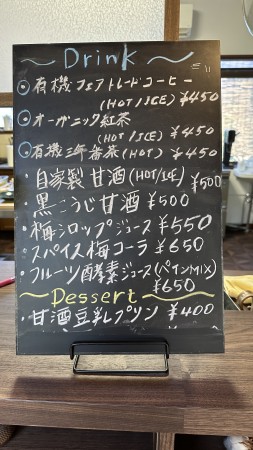 〜Drink〜
有機フェアトレードコーヒー
(HOT/ICE) ¥450
オーガニック紅茶
(HOT/ICE) ¥450
有機三年番茶(HOT) ¥450
・自家製 甘酒(HOT/ICE) ¥500
・黒こうじ甘酒 ¥500
・梅シロップジュース ¥550
・スパイス梅コーラ ¥650
・フルーツ酵素ジュース(パインMIX)
¥650
〜Dessert〜
・甘酒豆乳プリン ¥400